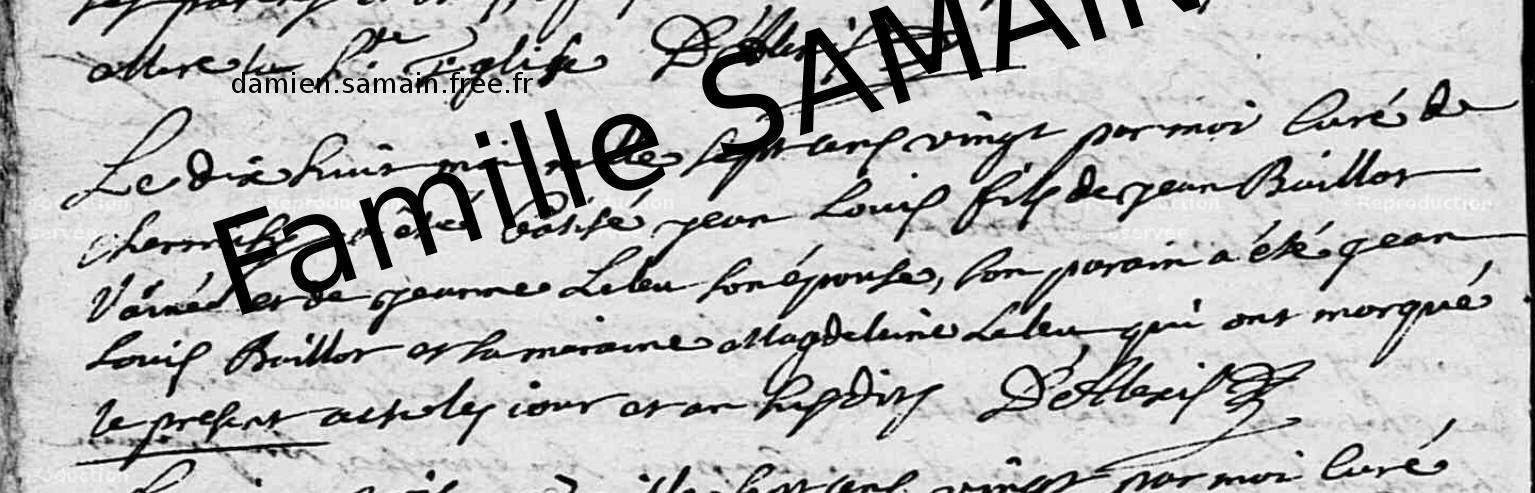 mere la Ste Eglise
damien.samain.free.fr
Famille SAMAIN
Le dix huit mai mille sept cens vingt par moi curé de
a été batisé jean Louis fils de jean Baillot
l'ainé et de jeanne Leleu son épouse, son parain a été jean
Louis Baillot et sa maraine Magdeleine Leleu qui ont marqué
le present acte les jour et an susdits
mille sept cens vingt par moi curé
© Reproduction
réservée